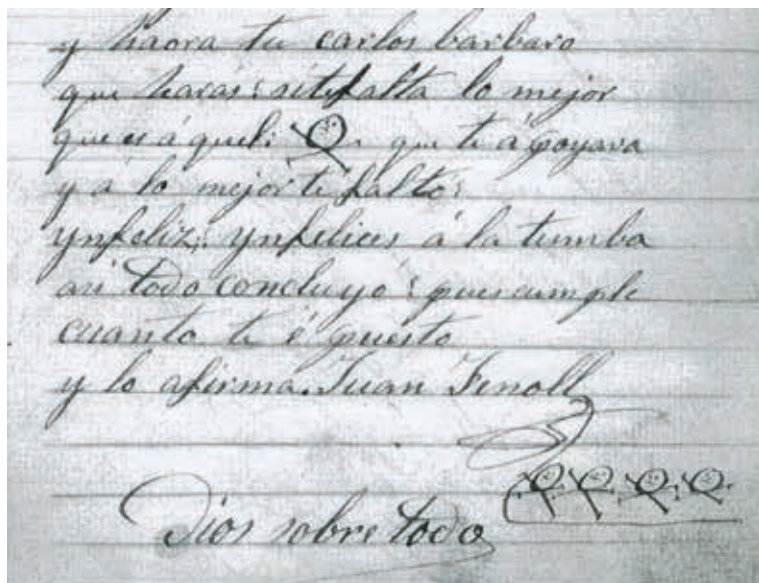 y haora tu carlos barbaro
que haras: sitefalta lo mejor
que es á quel: que te á poyava
y á lo mejor te faltó:
ynfeliz,: ynfelices á la tumba
asi todo concluyo: pues cumple
cuanto te é puesto
y lo afirma. Juan Fenoll
Dios sobre todo